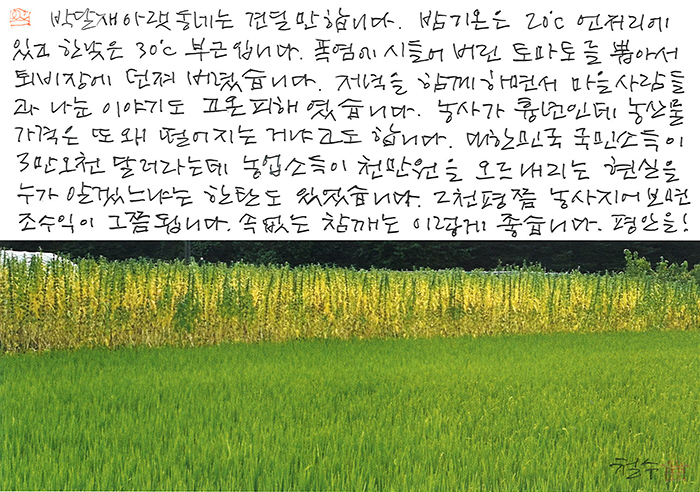 박달재 아랫동네는 견딜만합니다. 밤기온은 20℃ 언저리에
있고 한낮은 30℃ 부근입니다. 폭염에 시들어 버린 토마토를 뽑아서
퇴비장에 던져 버렸습니다. 저녁을 함께하면서 마을사람들
과 나눈 이야기도 고온피해였습니다. 농사가 흉년인데 농산물
가격은 또 왜 떨어지는 거냐고도 합니다. 대한민국 국민소득이
3만오천 달러라는데 농업소득이 천만원을 오르내리는 현실을
누가 알겠느냐는 한탄도 있었습니다. 2천평쯤 농사지어 보면
조수익이 그쯤 됩니다. 속없는 참깨는 이렇게 좋습니다. 평안을!
철수